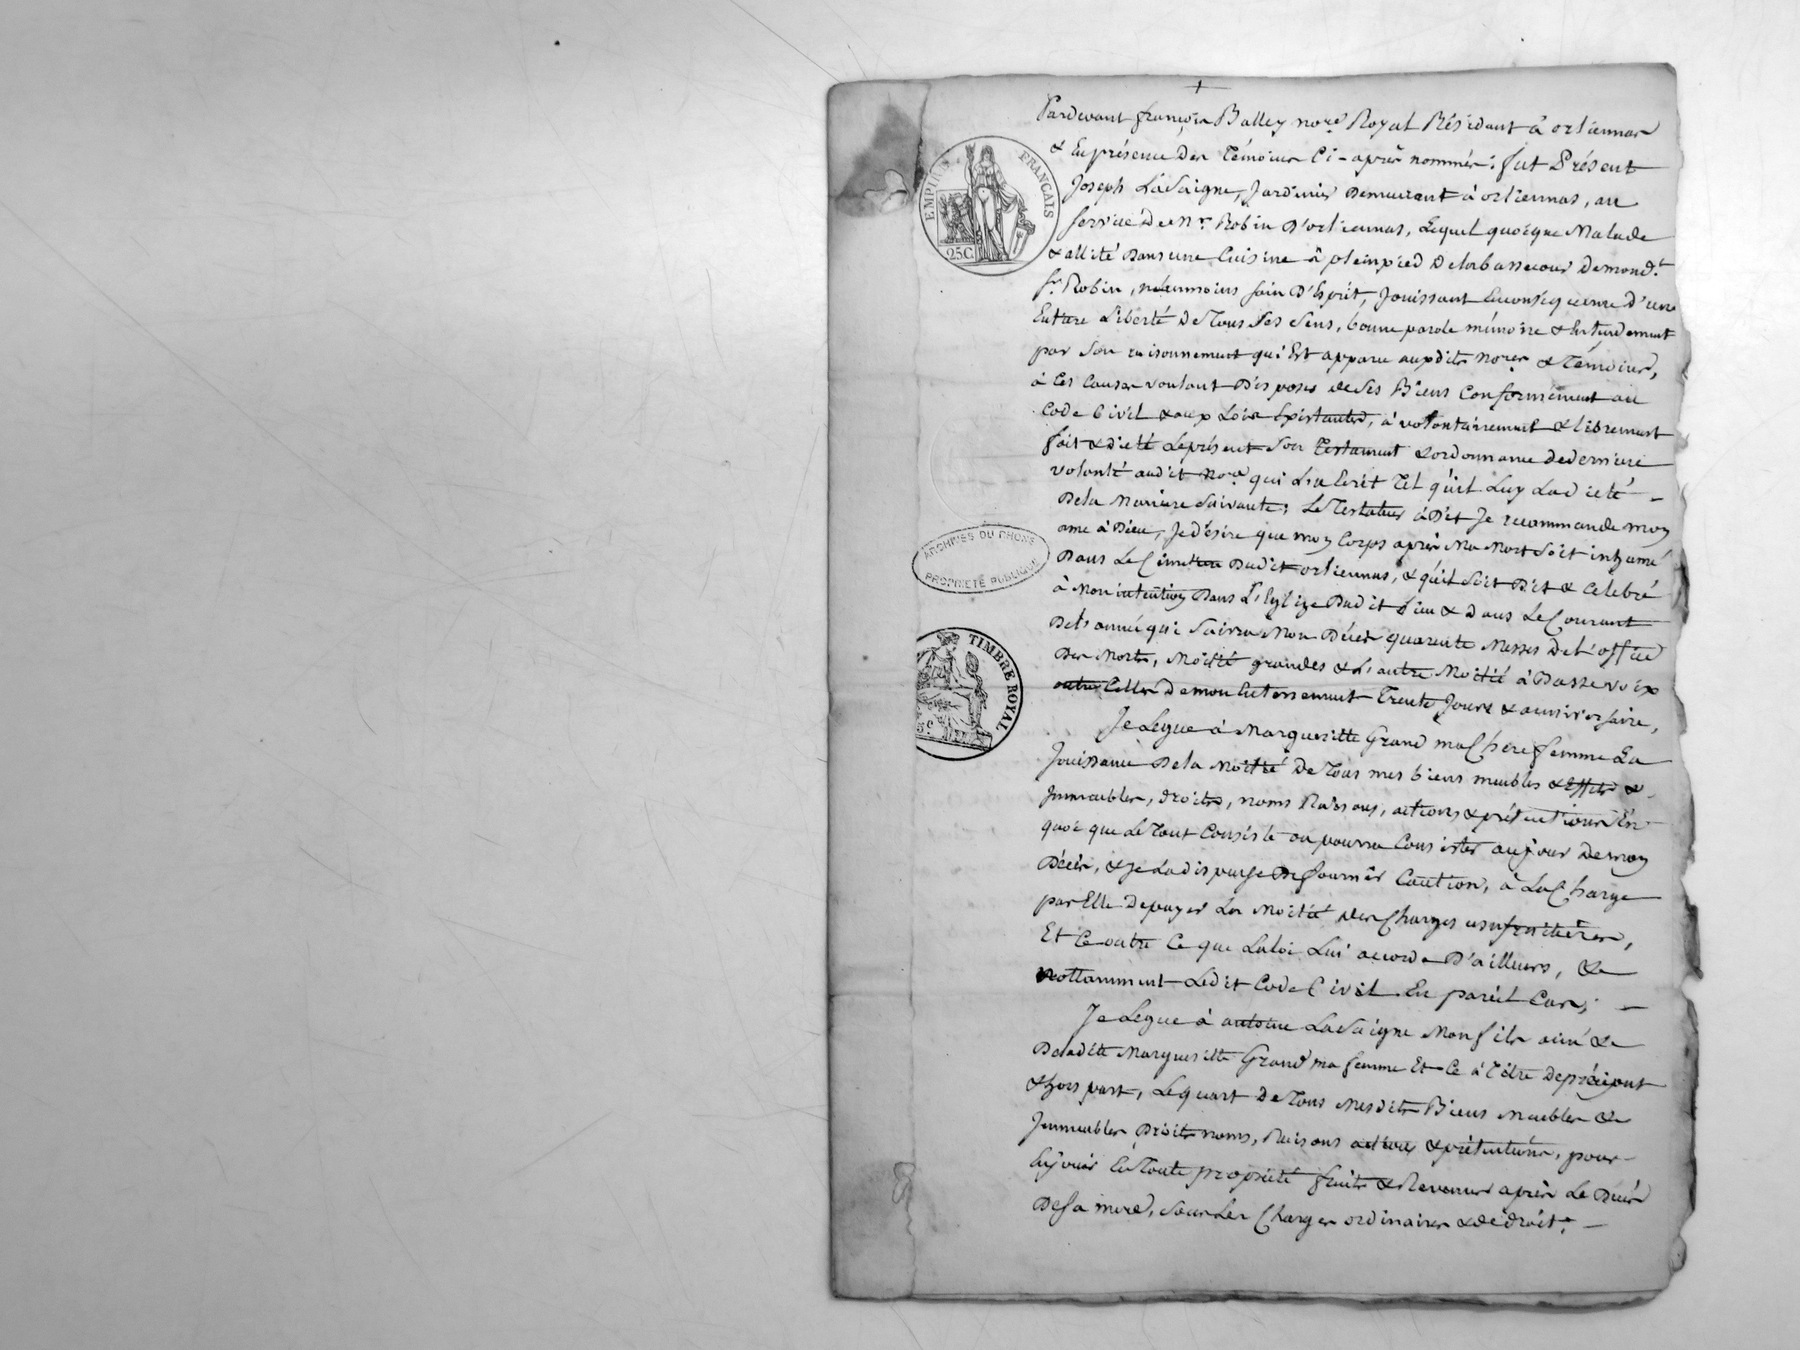 Pardevant françois Balley no.re Royal Résidant à orliennas
& En présence Des Témoins Ci-après nommés; fut Présent
Joseph LaSaigne, Jardinier Demeurant à orliennas, au
service De Mr. Robin D'orliennas, Lequel quoique Malade
& allité Dans une Cuisine à pleinpied De la bassecour De mond.t
Sr. Robin, néanmoins sain D'Esprit, Jouissant En conséquence D'une
Entiere Liberté De Tous Ses Sens, bonne parole mémoire & Entendement
par Son raisonnement qui Est apparu auxdits no.re & Témoins,
à Ces Causes voulant Disposer de Ses Biens Conformément au
Code Civil & aux Loix Existantes, à volontairement & librement
fait & Dicté Le présent Son Testament & ordonnance De derniere
volonté audit No.re qui L'a Ecrit Tel qu'il Luy La Dicté
De la Maniere Suivante; Le Testateur à Dit Je recommande moy
ame à Dieu, Je désire que moy Corps après Ma Mort Soit inhumé
Dans Le Cimetiere Dudit orliennas, & qu'il Soit Dit & Celebré
à Mon intentioy Dans L'Eglize Dudit Lieu & Dans Le Courant
De L'année qui Suivra Mon Décès quarante Messes De L'office
Des Morts, Moitié grandes & L'autre Moitié à Basse voix
outre Celles De mon Enterrement Trente Jours & anniversaire,
Je Legue à Margueritte Grand ma Chere femme La
Jouissance De la Moitié De Tous mes biens meubles & Effets &
Immeubles, droits, noms Raisons, actions & prétentions En
quoi que Le Tout Consiste ou pourra Consister au jour De moy
Décès, & Je La dispense De fournir Caution, à La Charge
par Elle De payer La Moitié Des Charges usufruitieres,
Et Ce outre Ce que La loi Lui accorde D'ailleurs, &
nottamment Ledit Code Civil En pareil Cas;
Je Legue à antoine LaSaigne Mon fils ainé &
De ladite Margueritte Grand ma femme Et Ce à Titre De préciput
& hors part, Le quart De Tous Mesdits Biens Meubles &
Immeubles Droits noms, Raisons actions & prétentions, pour
En jouir En Toute propriété fruits & Revenus après Le Décès
De Sa mere, Sous Les Charges ordinaires & de droit.
EMPIRE FRANÇAIS
25 C.
ARCHIVES DU RHONE
PROPRIETÉ PUBLIQUE
TIMBRE ROYAL